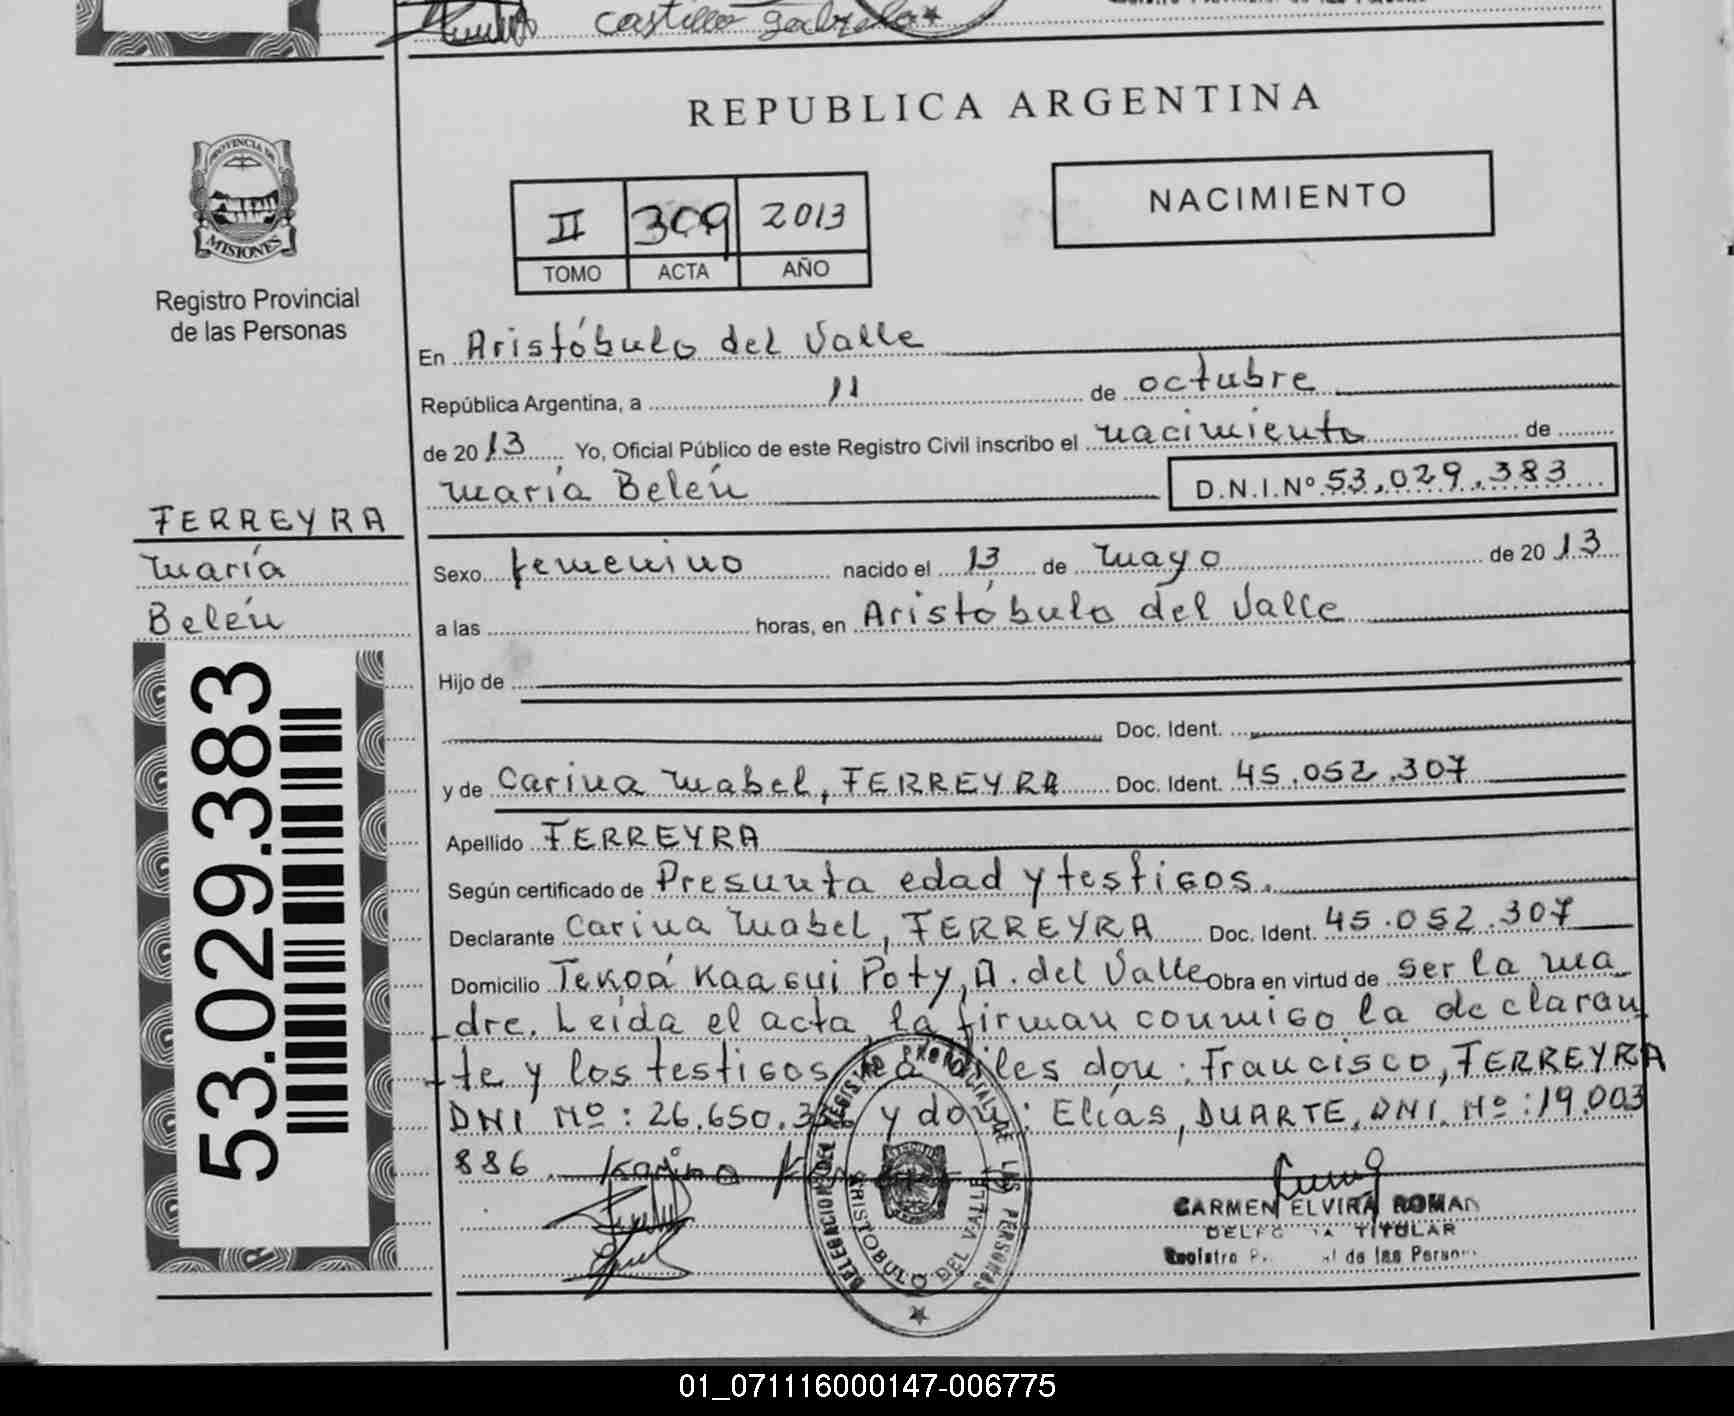 Castillo Gabriela
REPUBLICA ARGENTINA
PROVINCIA DE
MISIONES
Registro Provincial
de las Personas
II 309 2013
TOMO ACTA AÑO
NACIMIENTO
En Aristóbulo del Valle
República Argentina, a 11 de octubre
de 2013 Yo, Oficial Público de este Registro Civil inscribo el nacimiento de
María Belén D.N.I.Nº 53.029.383
FERREYRA
María
Belén
53.029.383
Sexo femenino nacido el 13 de mayo de 2013
a las horas, en Aristóbulo del Valle
Hijo de
Doc. Ident.
y de Carina Mabel, FERREYRA Doc. Ident. 45.052.307
Apellido FERREYRA
Según certificado de Presunta edad y testigos.
Declarante Carina Mabel, FERREYRA Doc. Ident. 45.052.307
Domicilio Tekoá Kaagui Poty, A. del Valle Obra en virtud de ser la ma
dre. Leída el acta, la firman conmigo la declaran
te y los testigos don: Francisco, FERREYRA
DNI Nº: 26.650. y don: Elías, DUARTE, DNI. Nº: 19.003
886. Karina
DELEGACION DEL REGISTRO PROVINCIAL DE LAS PERSONAS
ARISTOBULO DEL VALLE
CARMEN ELVIRA ROMAN
TITULAR
Registro de las
01_071116000147-006775